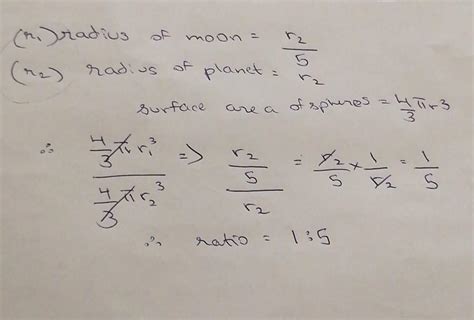 (r₁) radius of moon = r₂/5
(r₂) radius of planet = r₂
surface area of spheres = 4/3 πr³
∴ (4/3 πr₁³)/(4/3 πr₂³) => (r₂/5)/r₂ = r₂/5 × 1/r₂ = 1/5
∴ ratio = 1:5